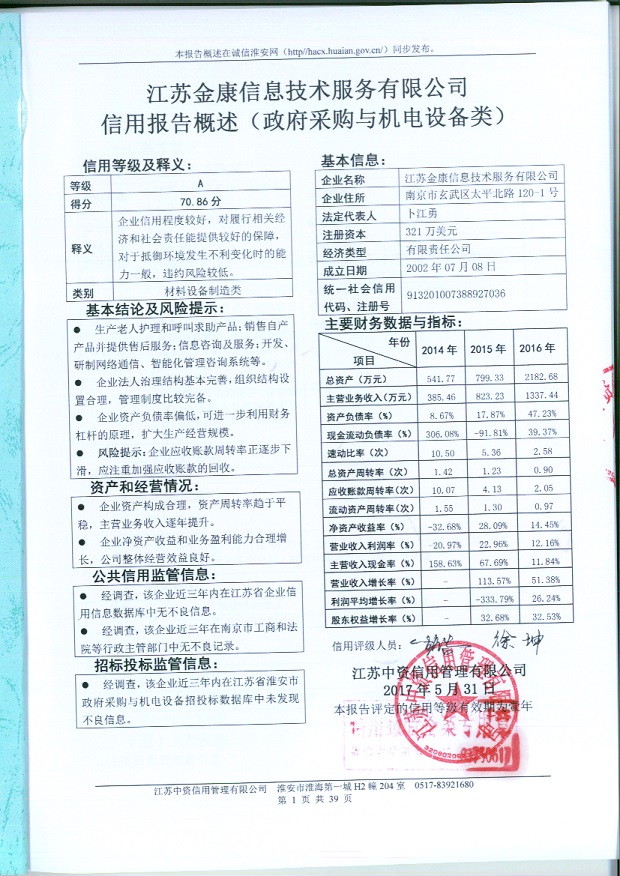 本报告概述在诚信淮安网（http//hacx.huaian.gov.cn/）同步发布。
江苏金康信息技术服务有限公司
信用报告概述（政府采购与机电设备类）
信用等级及释义：
等级 A
得分 70.86 分
释义
企业信用程度较好，对履行相关经
济和社会责任能提供较好的保障，
对于抵御环境发生不利变化时的能
力一般，违约风险较低。
类别 材料设备制造类
基本结论及风险提示：
● 生产老人护理和呼叫求助产品；销售自产
产品并提供售后服务；信息咨询及服务；开发、
研制网络通信、智能化管理咨询系统等。
● 企业法人治理结构基本完善，组织结构设
置合理，管理制度比较完备。
● 企业资产负债率偏低，可进一步利用财务
杠杆的原理，扩大生产经营规模。
● 风险提示：企业应收账款周转率正逐步下
滑，应注重加强应收账款的回收。
资产和经营情况：
● 企业资产构成合理，资产周转率趋于平
稳，主营业务收入逐年提升。
● 企业净资产收益和业务盈利能力合理增
长，公司整体经营效益良好。
公共信用监管信息：
● 经调查，该企业近三年内在江苏省企业信
用信息数据库中无不良信息。
● 经调查，该企业近三年在南京市工商和法
院等行政主管部门中无不良记录。
招标投标监管信息：
● 经调查，该企业近三年内在江苏省淮安市
政府采购与机电设备招投标数据库中未发现
不良信息。
基本信息：
企业名称 江苏金康信息技术服务有限公司
企业住所 南京市玄武区太平北路 120-1 号
法定代表人 卜江勇
注册资本 321 万美元
经济类型 有限责任公司
成立日期 2002 年 07 月 08 日
统一社会信用
代码、注册号 913201007388927036
主要财务数据与指标：
年份
项目 2014 年 2015 年 2016 年
总资产（万元） 541.77 799.33 2182.68
主营业务收入（万元） 385.46 823.23 1337.44
资产负债率（%） 8.67% 17.87% 47.23%
现金流动负债率（%） 306.08% -91.81% 39.37%
速动比率（次） 10.50 5.36 2.58
总资产周转率（次） 1.42 1.23 0.90
应收账款周转率（次） 10.07 4.13 2.05
流动资产周转率（次） 1.55 1.30 0.97
净资产收益率（%） -32.68% 28.09% 14.45%
营业收入利润率（%） -20.97% 22.96% 12.16%
主营收入现金率（%） 158.63% 67.69% 11.84%
营业收入增长率（%） - 113.57% 51.38%
利润平均增长率（%） - -333.79% 26.24%
股东权益增长率（%） - 32.68% 32.53%
信用评级人员：
徐坤
江苏中资信用管理有限公司
2017 年 5 月 31 日
本报告评定的信用等级有效期为壹年
江苏中资信用管理有限公司 淮安市淮海第一城 H2 幢 204 室 0517-83921680
第 1 页 共 39 页